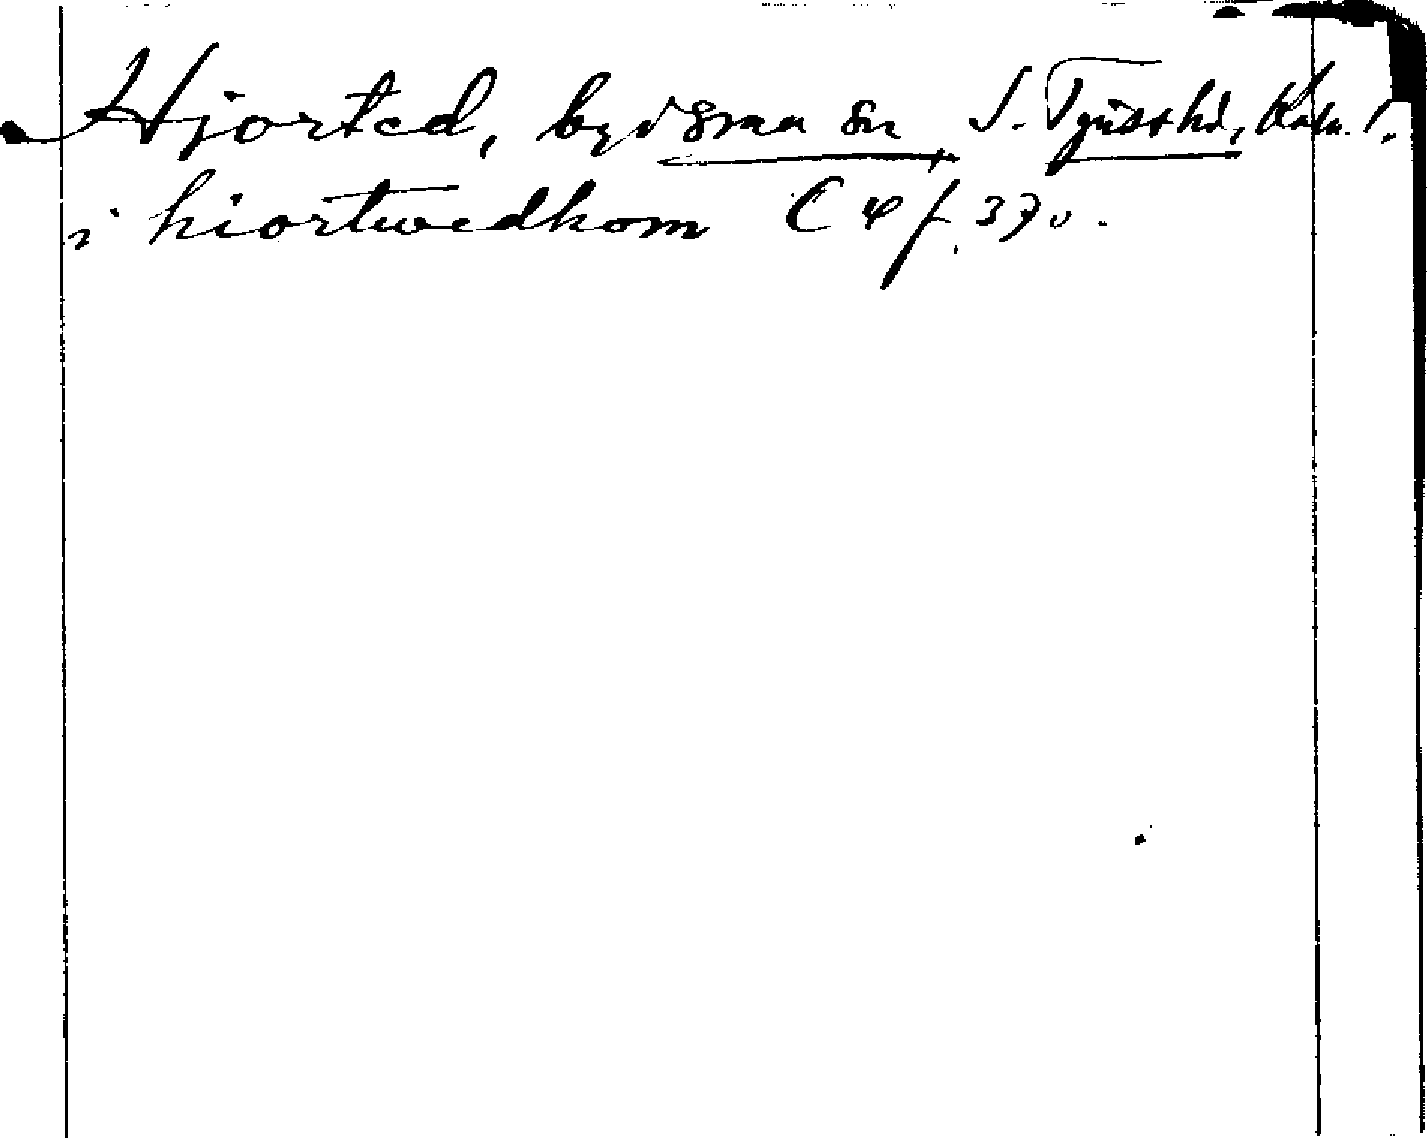 Hjorted, by i S. Tjusts hd, Kalm. l.
i hiortwedhom C 4 f. 37 v.